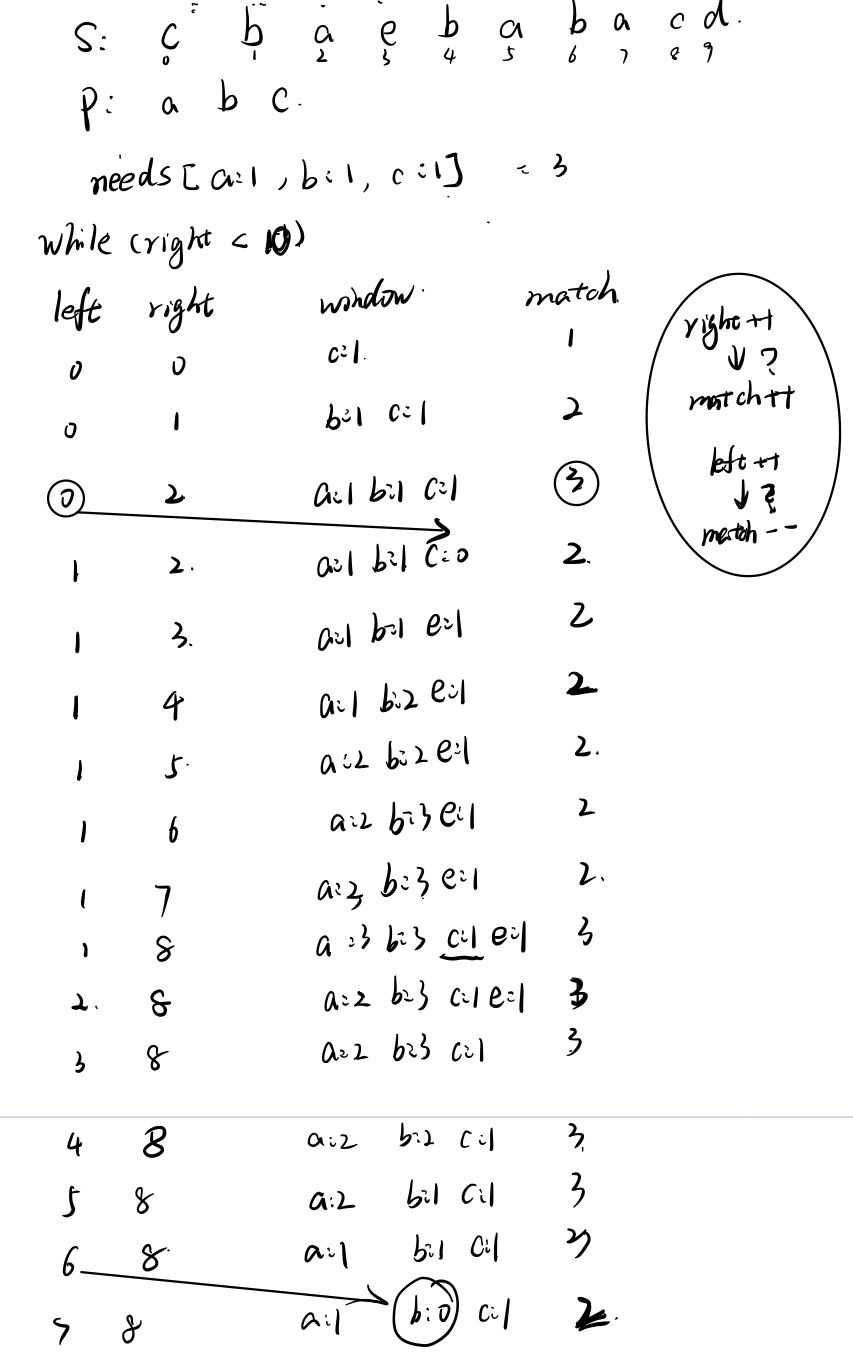 S: c b a e b a b a c d.
0 1 2 3 4 5 6 7 8 9
p: a b c.
needs [a:1, b:1, c:1] = 3
while (right < 10)
left right window. match
0 0 c:1. 1
0 1 b:1 c:1 2
0 2 a:1 b:1 c:1 3
1 2. a:1 b:1 c:0 2.
1 3. a:1 b:1 e:1 2
1 4 a:1 b:2 e:1 2
1 5. a:2 b:2 e:1 2.
1 6 a:2 b:3 e:1 2
1 7 a:3 b:3 e:1 2.
1 8 a:3 b:3 c:1 e:1 3
2. 8 a:2 b:3 c:1 e:1 3
3 8 a:2 b:3 c:1 3
4 8 a:2 b:2 c:1 3
5 8 a:2 b:1 c:1 3
6 8 a:1 b:1 c:1 3
7 8 a:1 b:0 c:1 2.
right++
↓ ?
match++
left++
↓ ?
match--